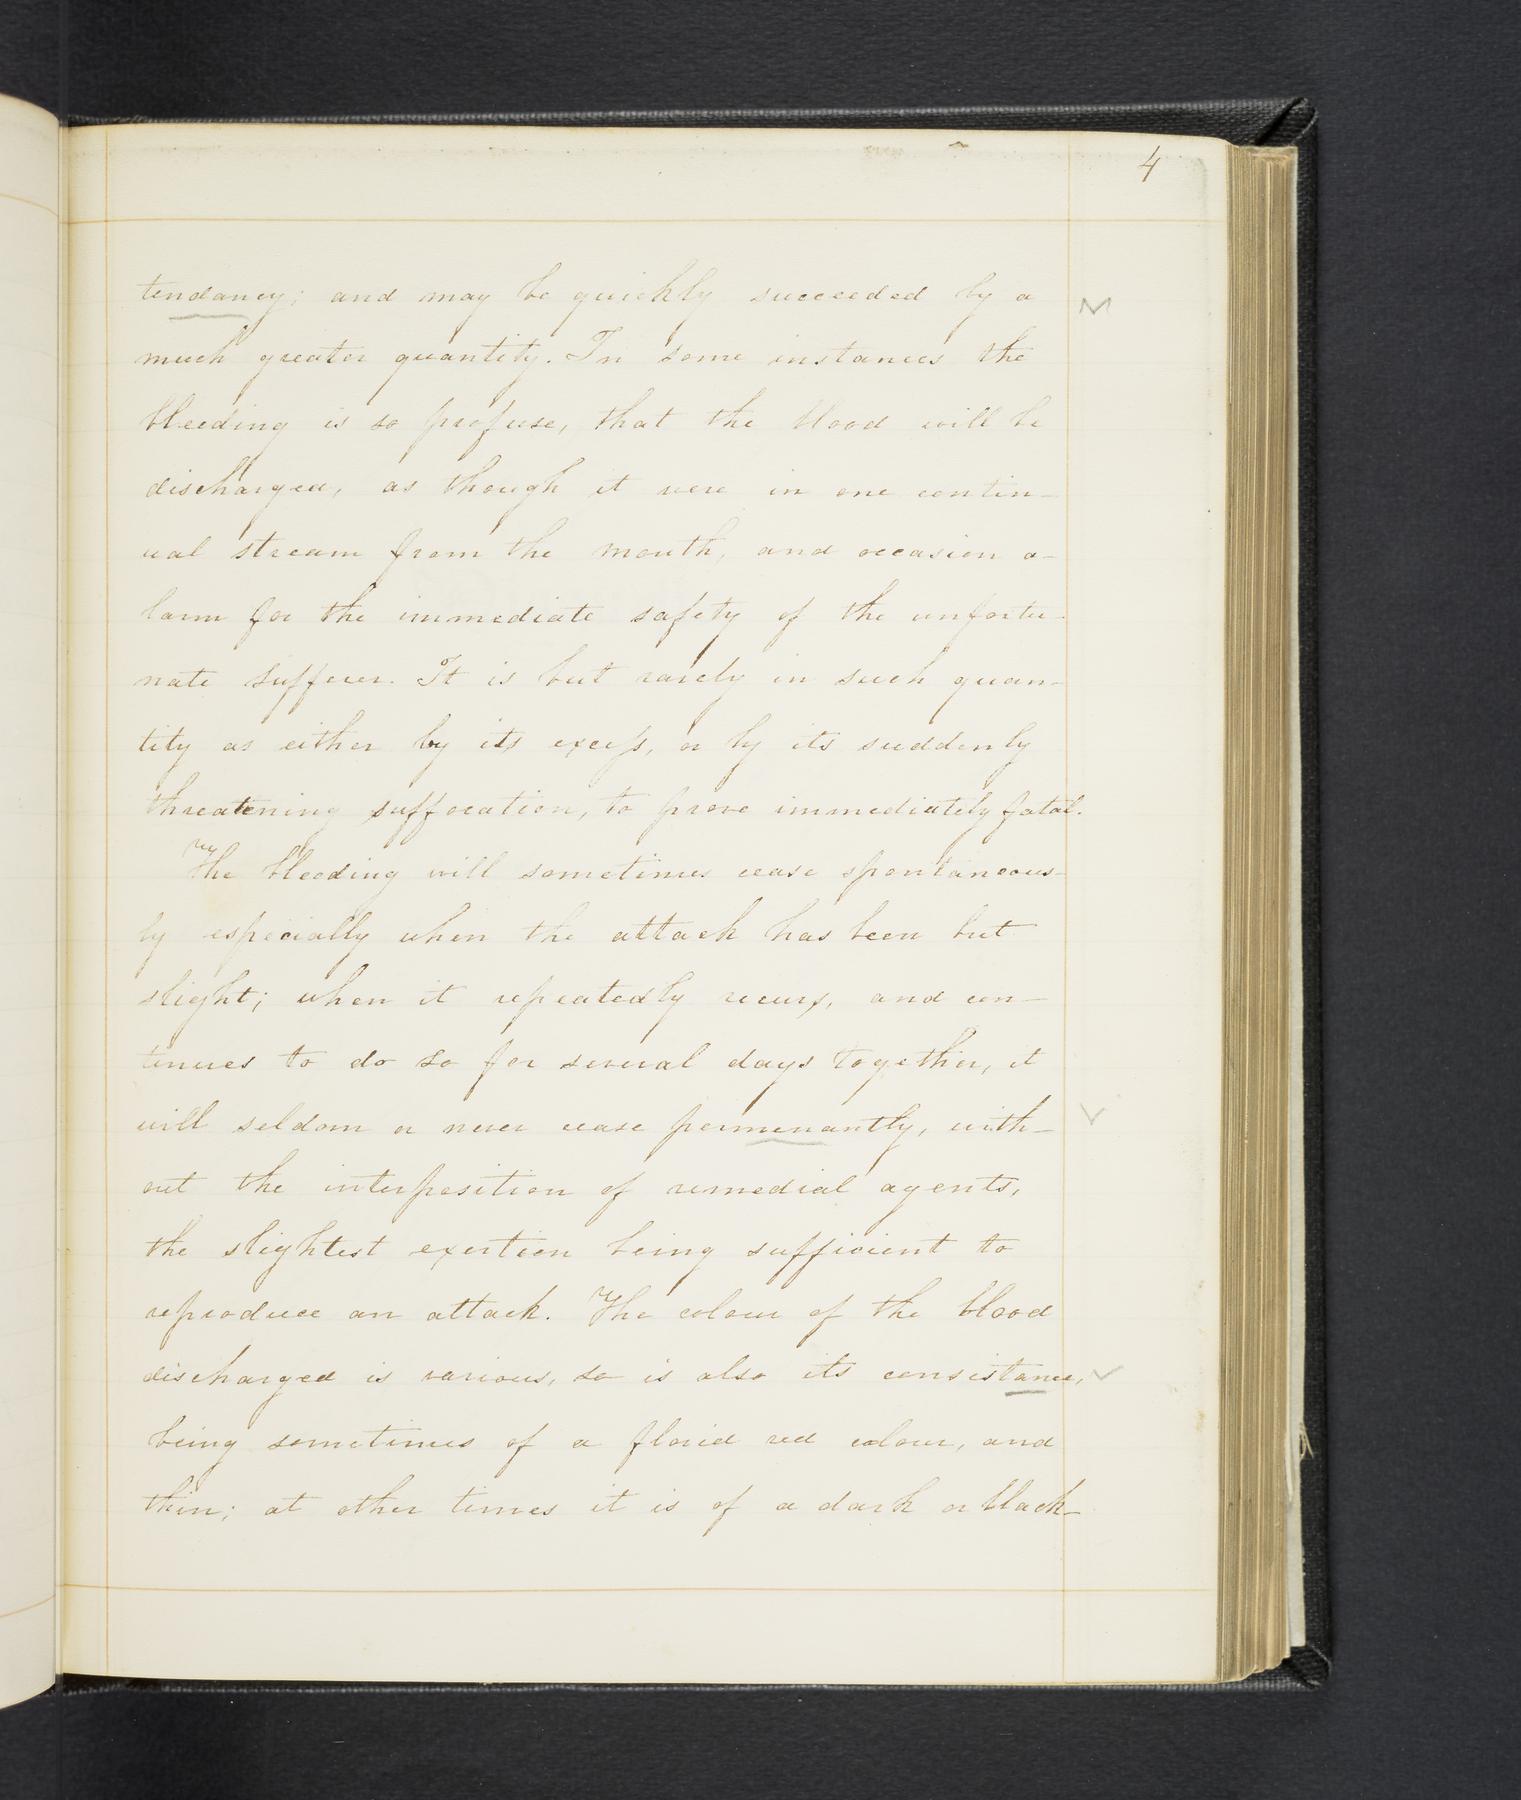 4
tendancy; and may be quickly succeeded by a
much greater quantity. In some instances the
bleeding is so profuse, that the blood will be
discharged, as though it were in one contin-
ual stream from the mouth, and occasion a-
larm for the immediate safety of the unfortu-
nate sufferer. It is but rarely in such quan-
tity as either by its excess, or by its suddenly
threatening suffocation, to prove immediately fatal.
The bleeding will sometimes cease spontaneous-
ly especially when the attack has been but
slight; when it repeatedly recurs, and con-
tinues to do so for several days together, it
will seldom or never cease permenantly, with-
out the interposition of remedial agents,
the slightest exertion being sufficient to
reproduce an attack. The colour of the blood
discharged is various, so is also its consistance,
being sometimes of a florid red colour, and
thin; at other times it is of a dark or black-